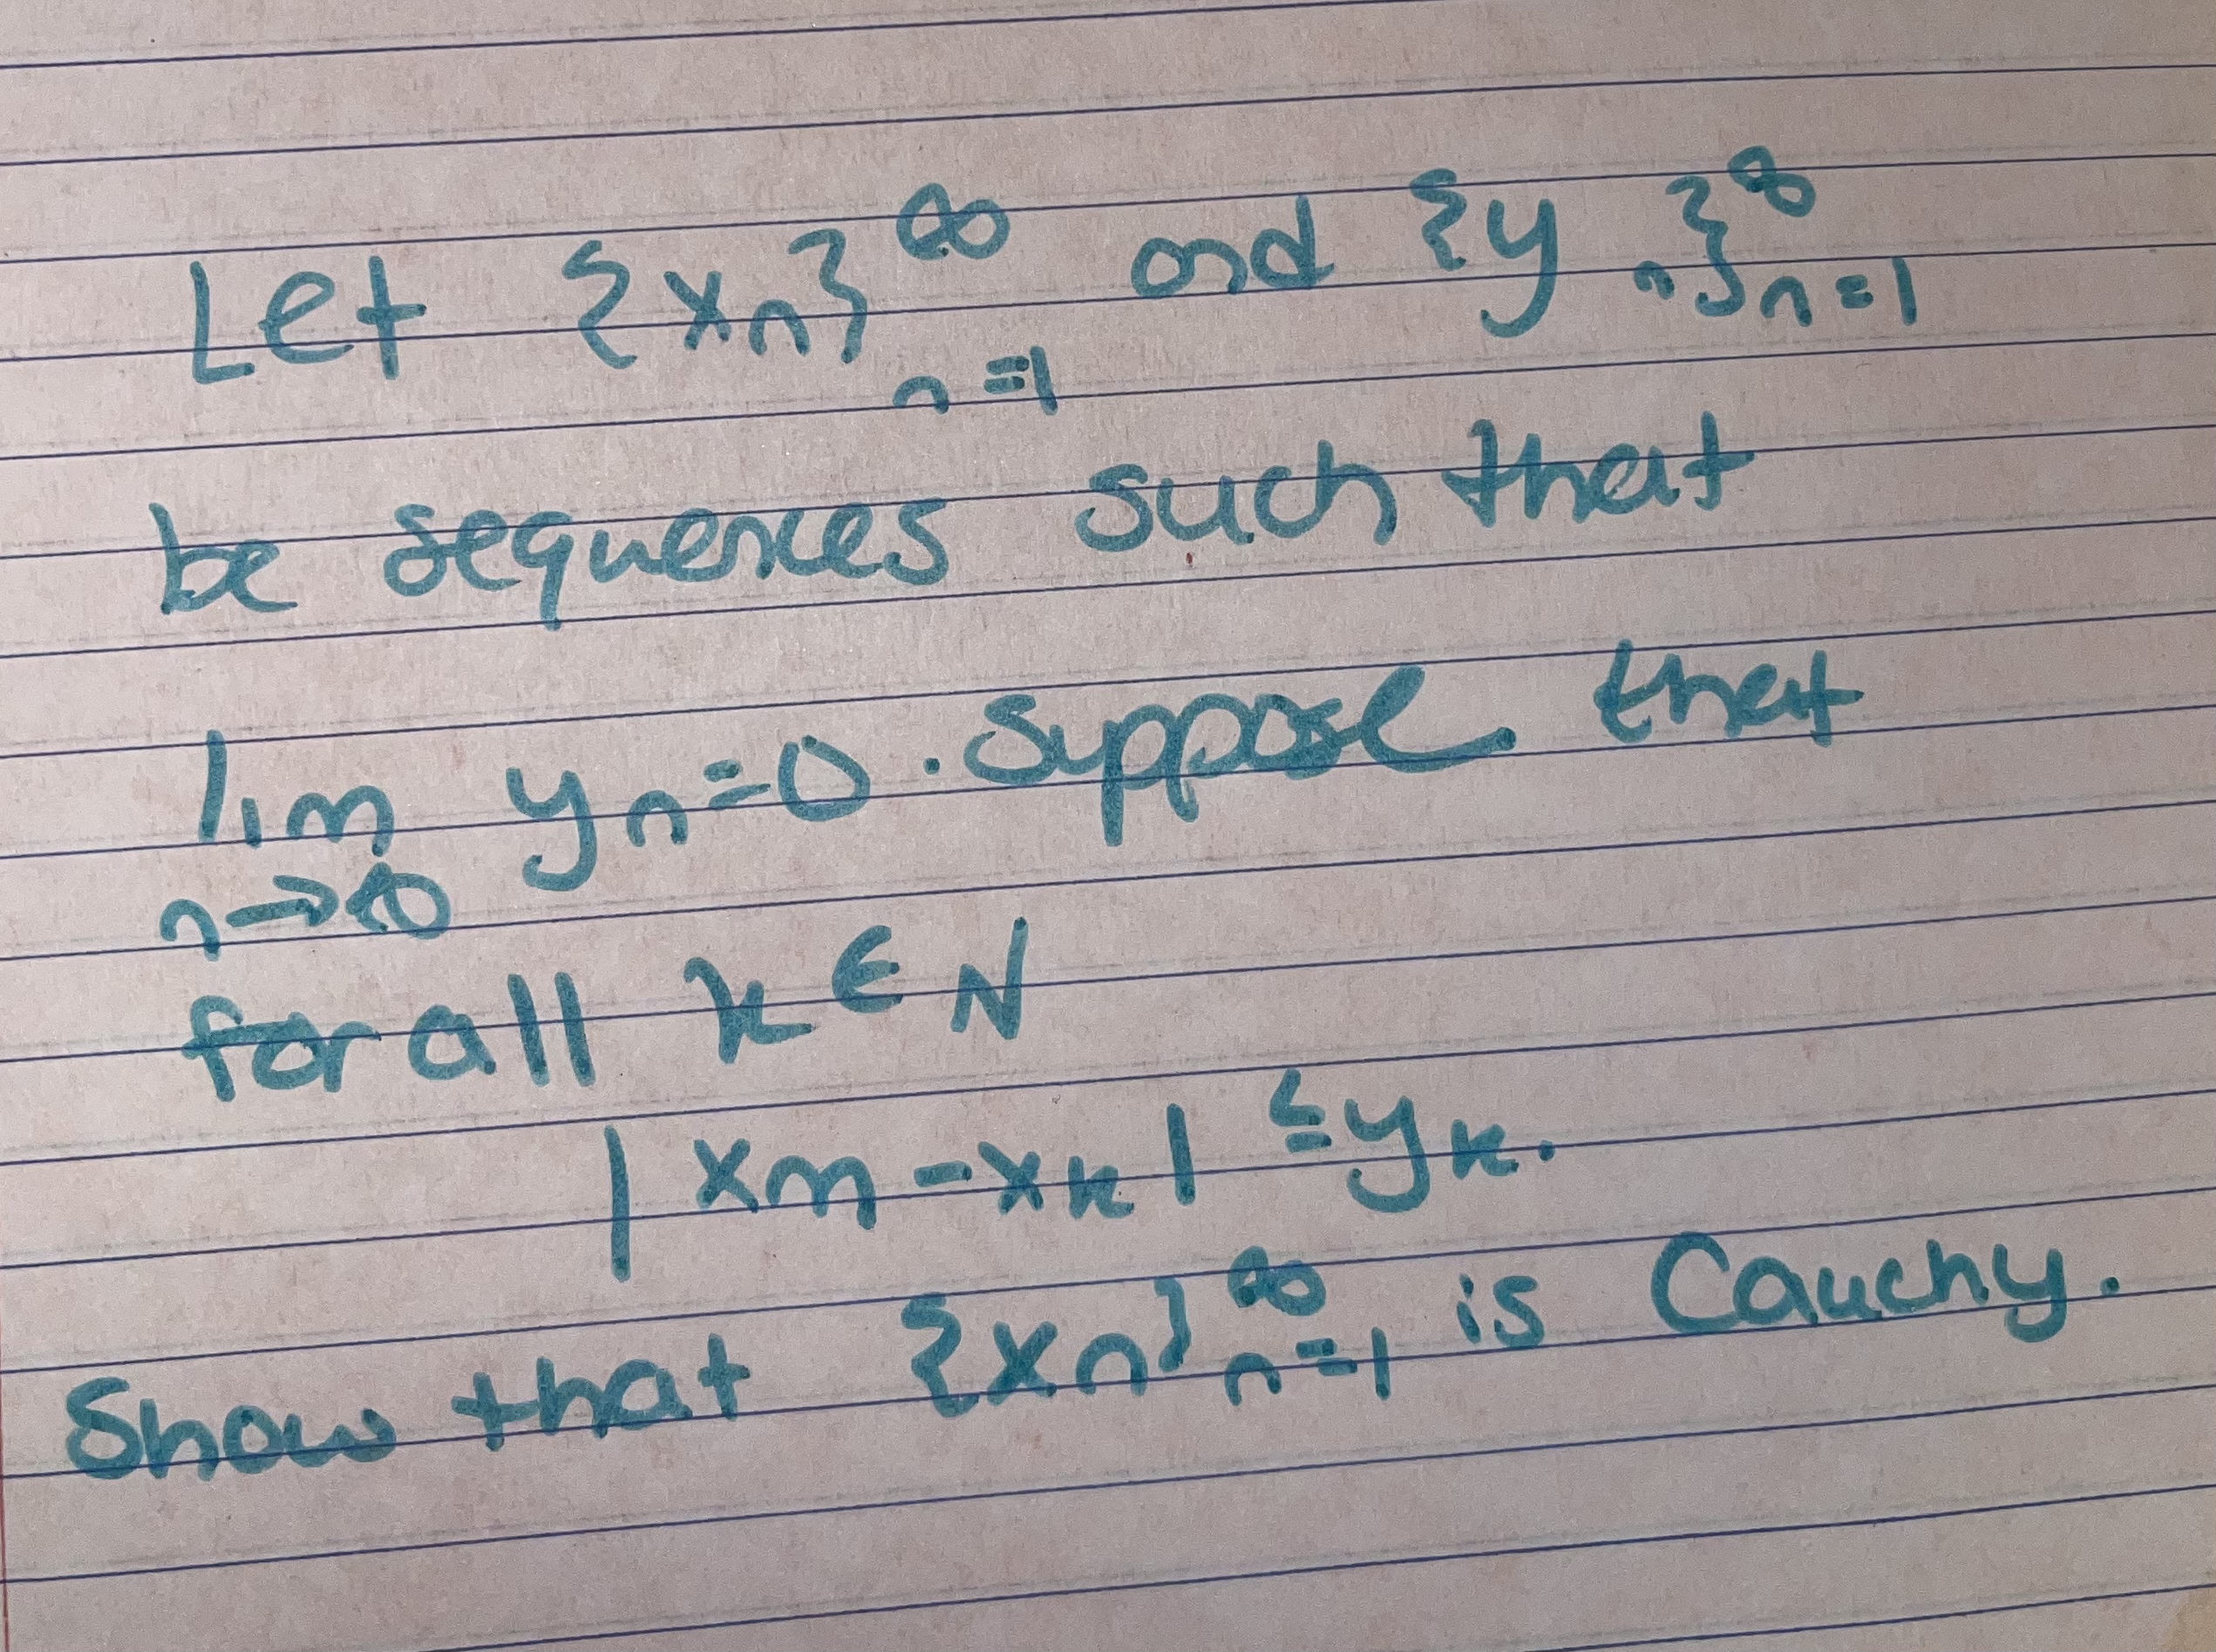 Let {xₙ}^∞_{n=1} and {yₙ}^∞_{n=1}
be sequences such that
lim_{n→∞} yₙ=0. Suppose that
for all k ∈ N
|xₘ-xₖ| ≤ yₖ.
Show that {xₙ}^∞_{n=1} is Cauchy.